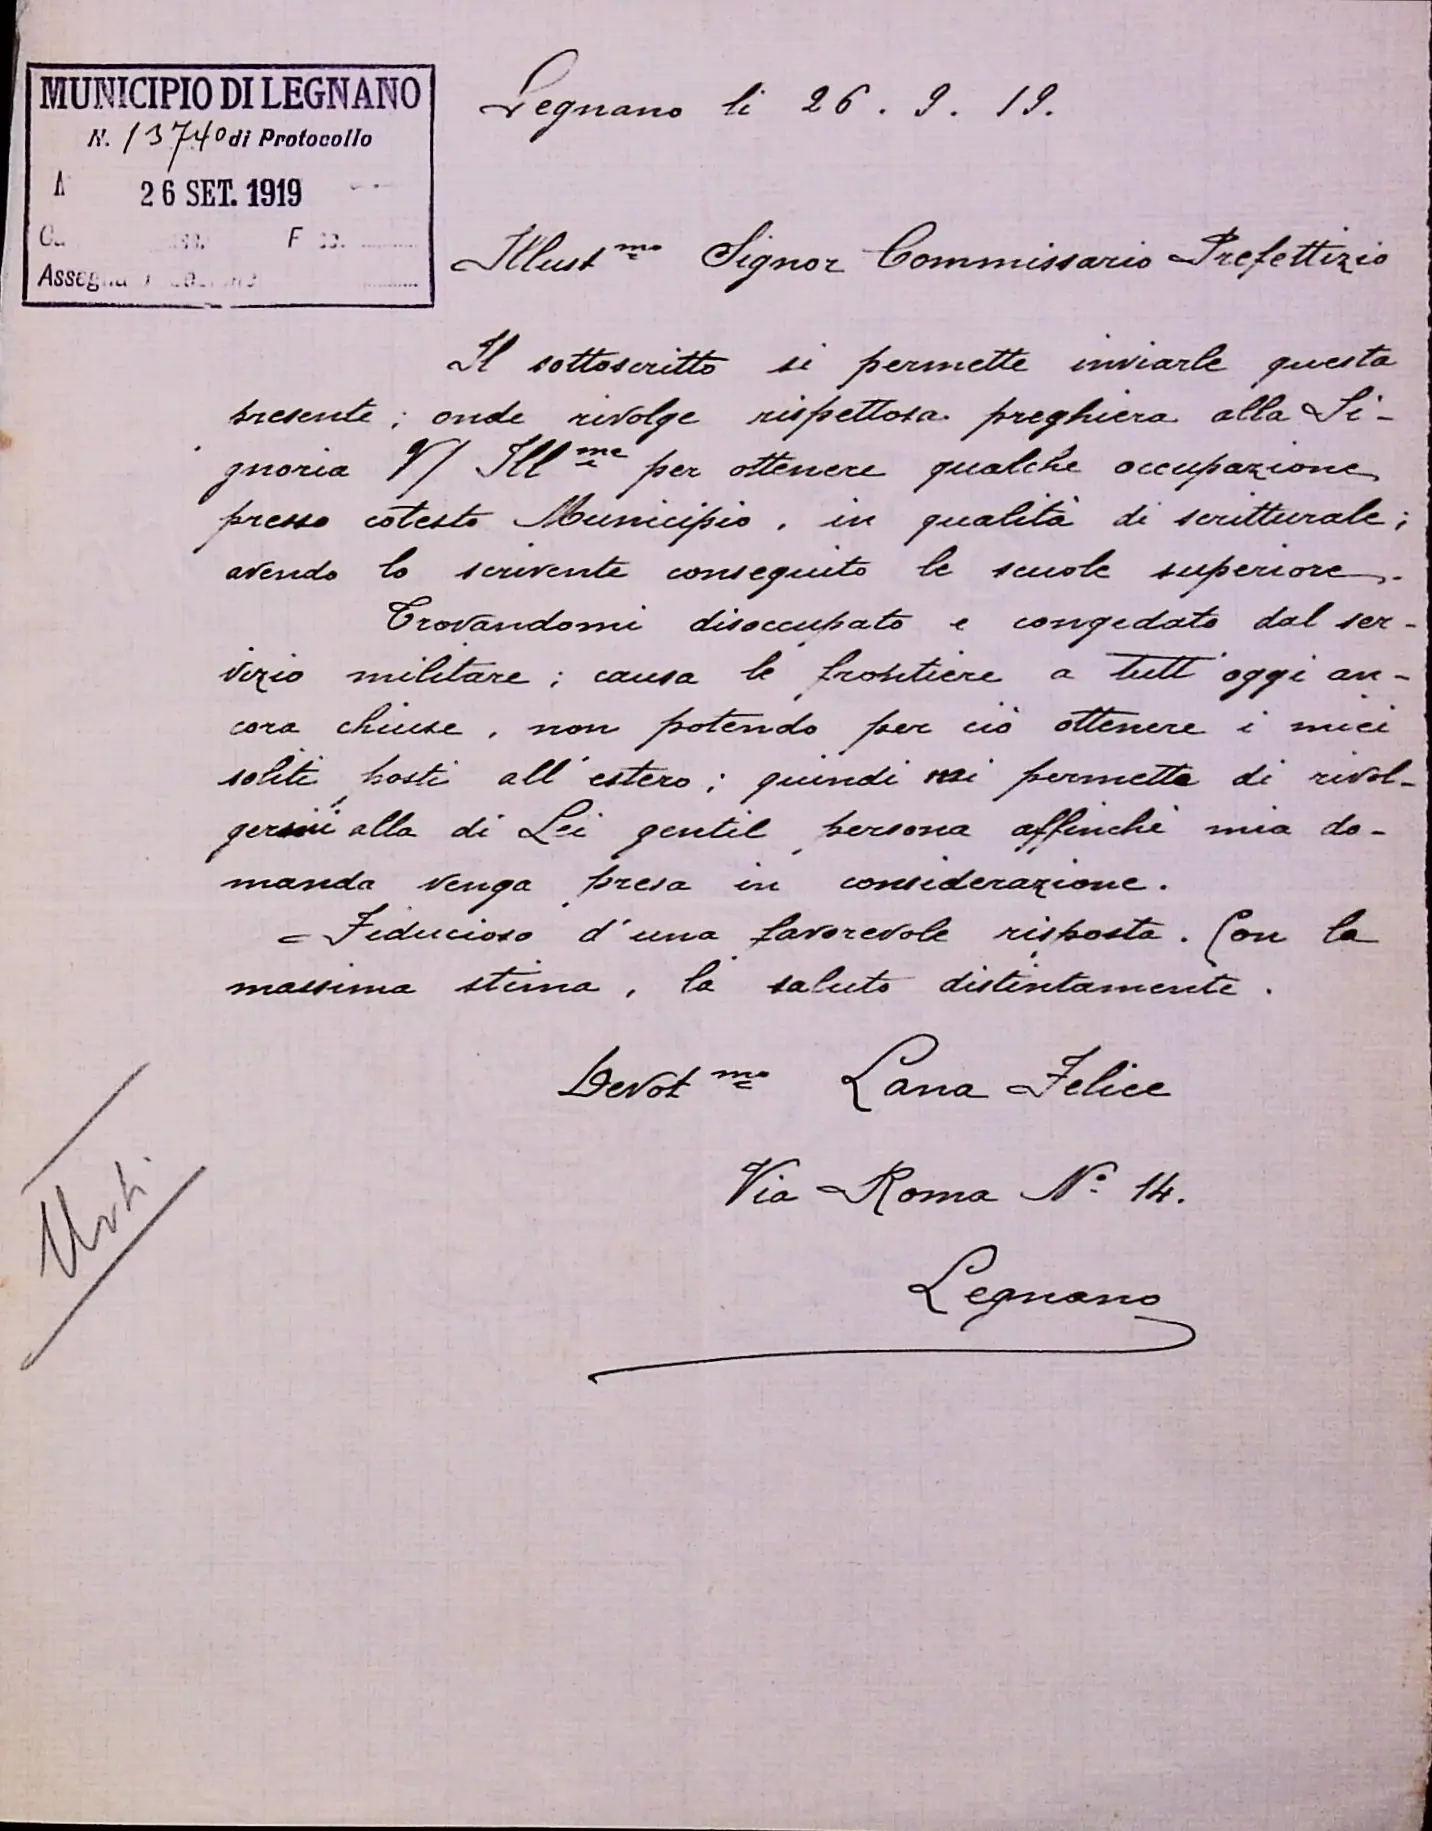 MUNICIPIO DI LEGNANO
N. 13740 di Protocollo
A
26 SET. 1919
Legnano li 26. 9. 19.
Illust.mo Signor Commissario Prefettizio
Il sottoscritto si permette inviarle questa
presente; onde rivolge rispettosa preghiera alla Si-
gnoria V/ Ill.me per ottenere qualche occupazione
presso cotesto Municipio, in qualità di scritturale;
avendo lo scrivente conseguito le scuole superiore.
Trovandomi disoccupato e congedato dal ser-
vizio militare; causa le frontiere a tutt'oggi an-
cora chiuse, non potendo per ciò ottenere i miei
soliti posti all'estero; quindi mi permetto di rivol-
germi alla di Lei gentil persona affinchè mia do-
manda venga presa in considerazione.
Fiducioso d'una favorevole risposta. Con la
massima stima, la saluto distintamente.
Devot.mo Lana Felice
Via Roma N° 14.
Legnano